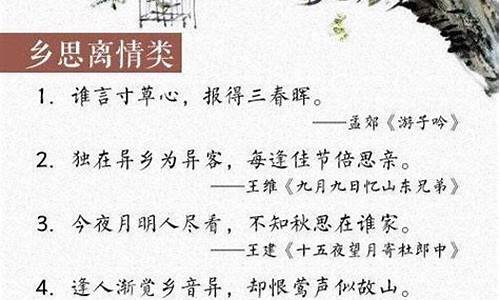 乡思离情类
1. 谁言寸草心，报得三春晖。
——孟郊《游子吟》
2. 独在异乡为异客，每逢佳节倍思亲。
——王维《九月九日忆山东兄弟》
3. 今夜月明人尽看，不知秋思在谁家。
——王建《十五夜望月寄杜郎中》
4. 逢人渐觉乡音异，却恨莺声似故山。